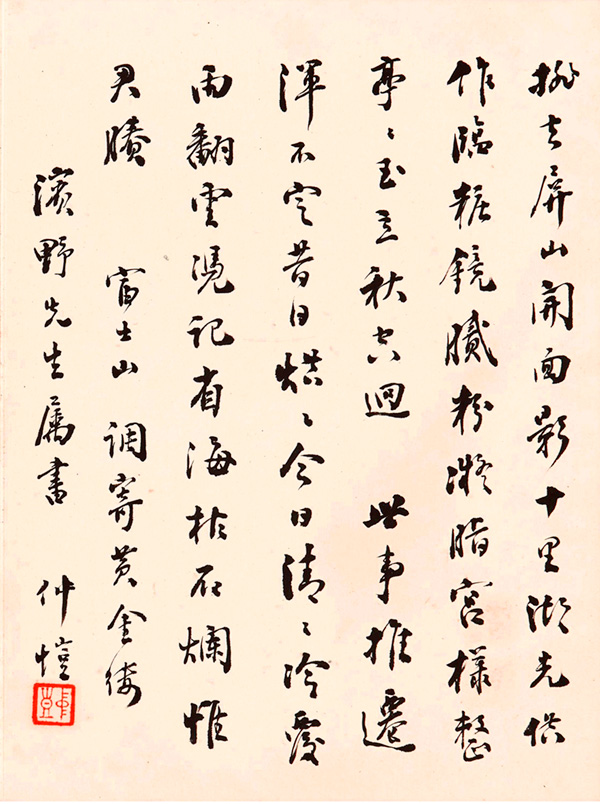 去屏山開面影十里湖光供
作臨糚鏡膩粉凝脂宮樣整
亭〻玉立秋空迥 世事推遷
渾不定昔日烘〻今日清〻冷覆
雨翻雲憑記省海枯石爛惟
君賸 富士山 調寄黃金縷
濱野先生属書 仲愷